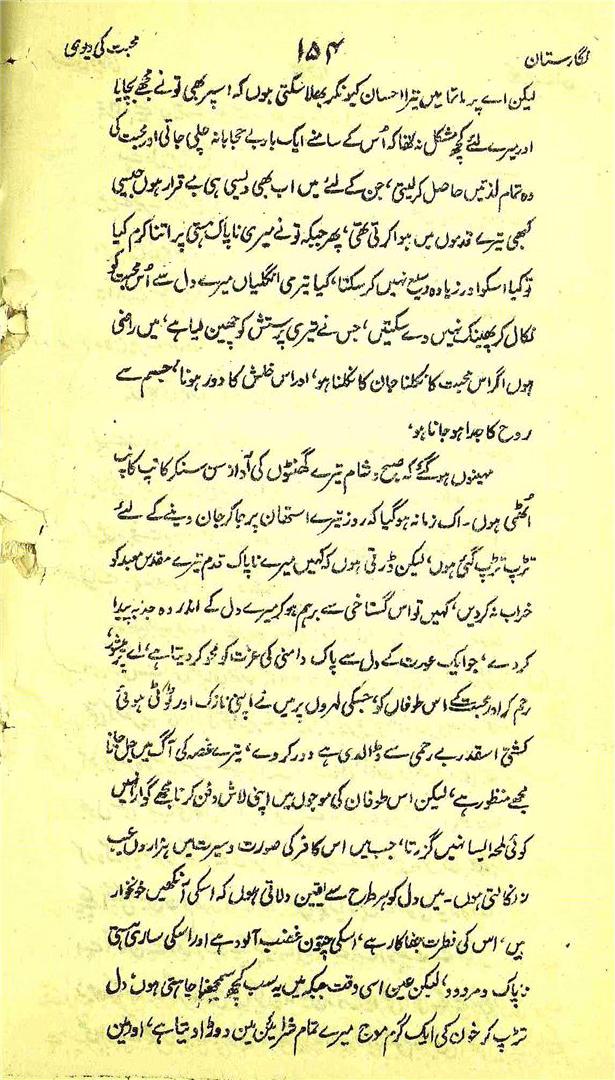 نگارستان ۱۵۴ محبت کی دیوی
لیکن اے پرماتما میں تیرا احسان کیونکر بھلا سکتی ہوں کہ اسپر بھی تو نے مجھے بچایا
اور میرے لئے کچھ مشکل نہ تھا کہ اُس کے سامنے ایک بار بے حجابانہ چلی جاتی اور محبت کی
وہ تمام لذتیں حاصل کر لیتی، جن کے لئے میں اب بھی ویسی ہی بے قرار ہوں جیسی
کبھی تیرے قدموں میں ہوا کرتی تھی، پھر جبکہ تو نے میری ناپاک ہستی پر اتنا کرم کیا
تو کیا اسکو اور زیادہ وسیع نہیں کر سکتا، کیا تیری انگلیاں میرے دل سے اُس محبت کو
نکال کر پھینک نہیں دے سکتیں، جس نے تیری پرستش کو چھین لیا ہے، میں راضی
ہوں اگر اس محبت کا نکلنا جان کا نکلنا ہو، اور اس خلش کا دور ہونا، جسم سے
روح کا جدا ہو جانا ہو،
مہینوں ہو گئے کہ صبح و شام تیرے گھنٹوں کی آواز سن سنکر کانپ کانپ
اُٹھی ہوں۔ اک زمانہ ہو گیا کہ روز تیرے استھان پر جا کر جان دینے کے لئے
تڑپ تڑپ گئی ہوں، لیکن ڈرتی ہوں کہ کہیں میرے ناپاک قدم تیرے مقدس معبد کو
خراب نہ کر دیں، کہیں تو اس گستاخی سے برہم ہو کر میرے دل کے اندر وہ جذبہ پیدا
کر دے، جو ایک عورت کے دل سے پاک دامنی کی عزت کو محو کر دیتا ہے، اے پرمیشور،
رحم کر اور محبت کے اس طوفان کو، جسکی لہروں پر میں نے اپنی نازک اور ٹوٹی ہوئی
کشتی اسقدر بے رحمی سے ڈالدی ہے دور کر دے، تیرے غصہ کی آگ میں جل جانا
مجھے منظور ہے، لیکن اس طوفان کی موجوں میں اپنی لاش دفن کرنا مجھے گوارا نہیں
کوئی لمحہ ایسا نہیں گزرتا، جب میں اس کافر کی صورت و سیرت میں ہزاروں عیب
نہ نکالتی ہوں۔ میں دل کو ہر طرح سے یقین دلاتی ہوں کہ اسکی آنکھیں خونخوار
ہیں، اس کی فطرت جفا کار ہے، اسکی چتون غضب آلود ہے اور اسکی ساری ہستی
ناپاک و مردود، لیکن عین اسی وقت جبکہ میں یہ سب کچھ سمجھنا چاہتی ہوں، دل
تڑپ کر خون کی ایک گرم موج میرے تمام شرائین میں دوڑا دیتا ہے، اور میں